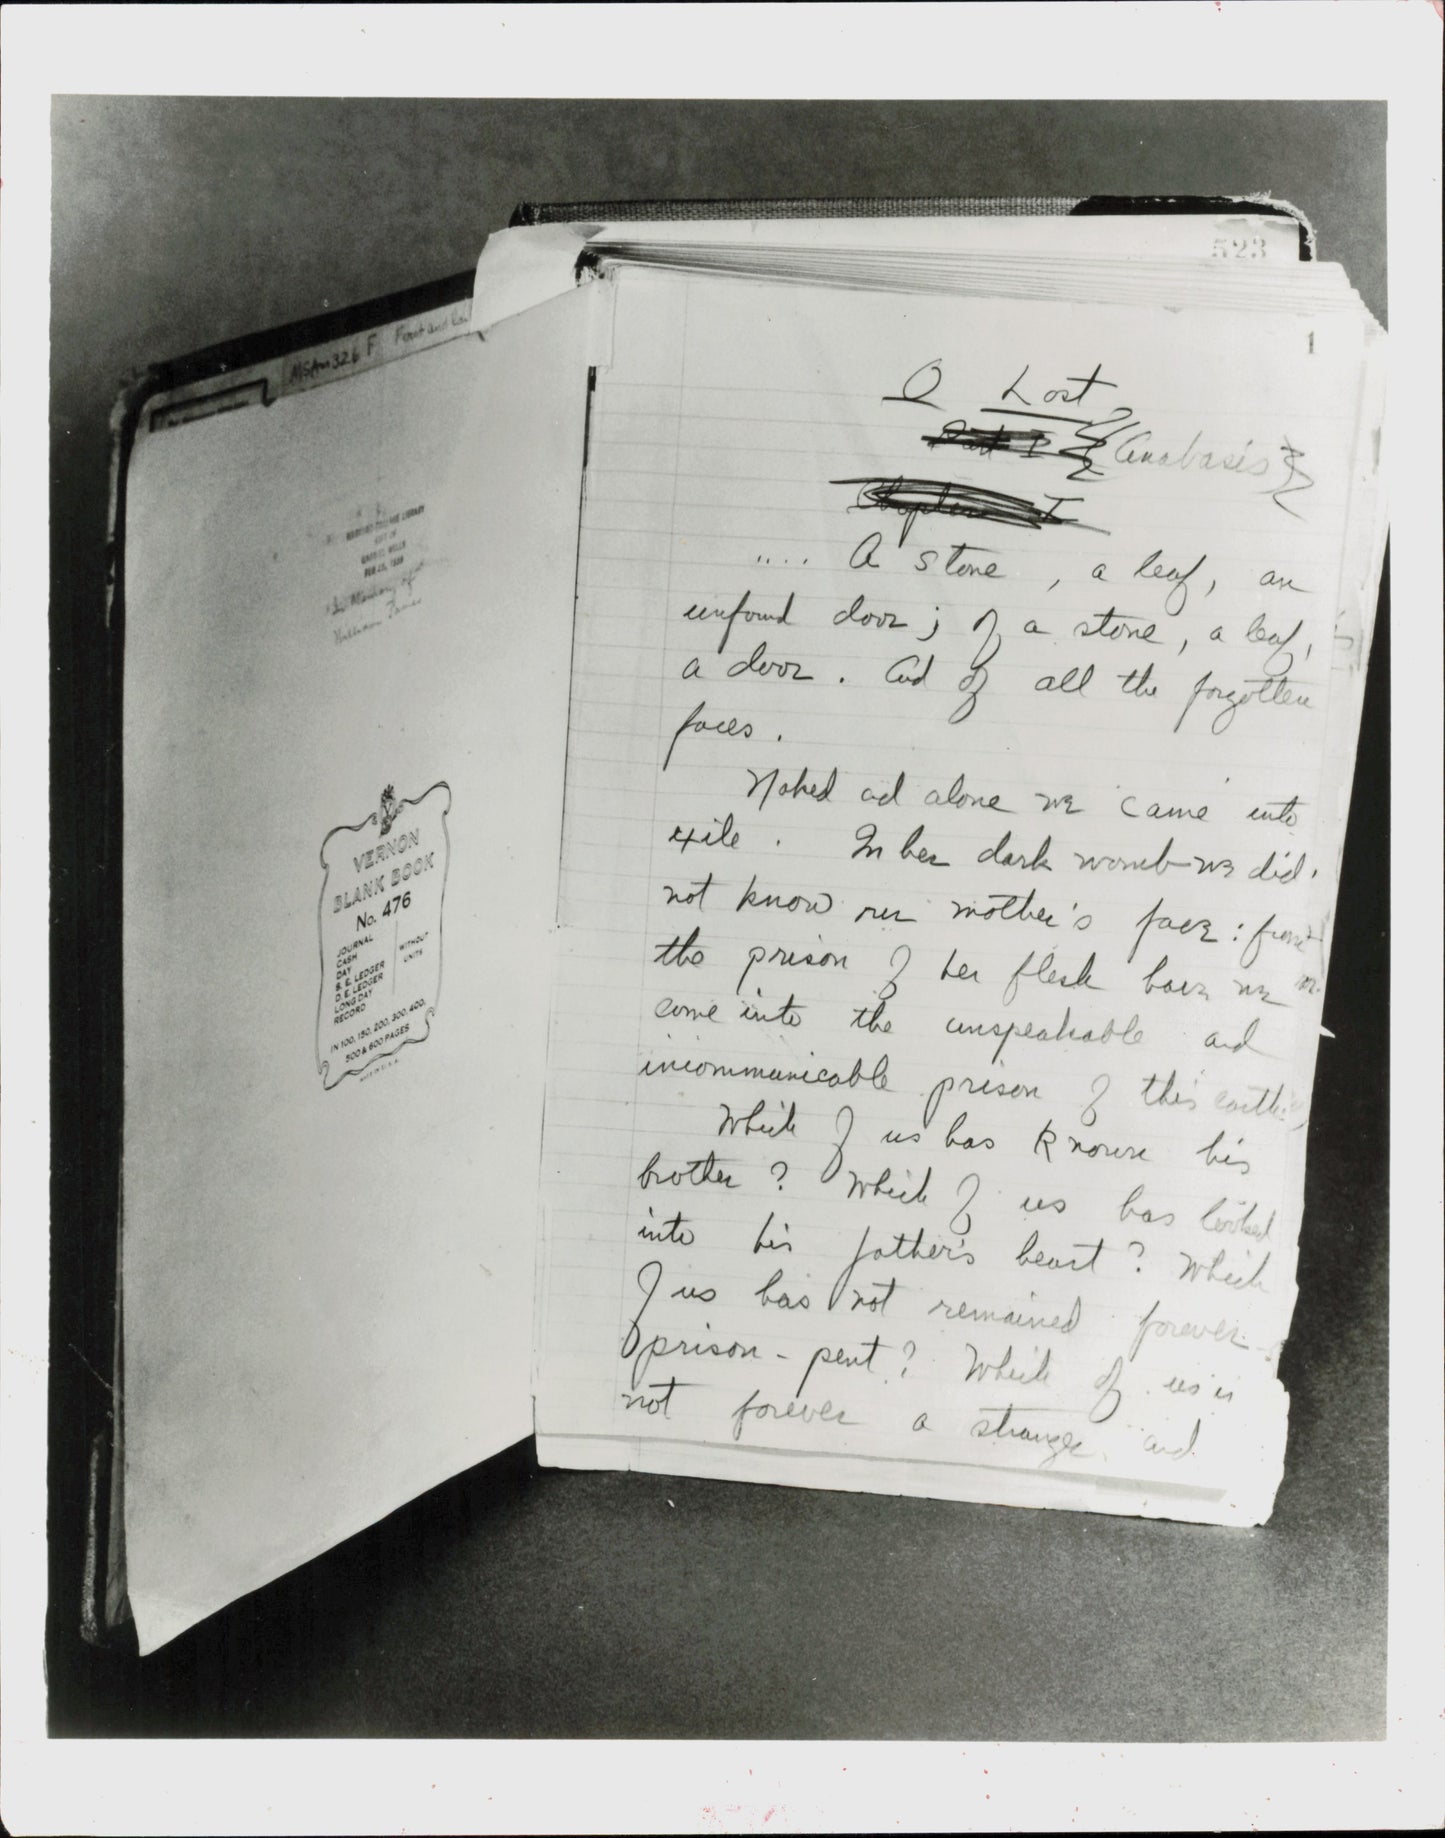 MSAm 326 F
HARVARD COLLEGE LIBRARY
GIFT OF
GABRIEL WELLS
In Memory of
William James
VERNON
BLANK BOOK
No. 476
JOURNAL
CASH
DAY
S. E. LEDGER
D. E. LEDGER
LONG DAY
RECORD
WITHOUT
UNITS
IN 100, 150, 200, 300, 400,
500 & 600 PAGES
MADE IN U.S.A.
523
1
O Lost
Part I Anabasis
Chapter I
.... A stone, a leaf, an
unfound door; of a stone, a leaf,
a door. And of all the forgotten
faces.
Naked and alone we came into
exile. In her dark womb we did
not know our mother's face: from
the prison of her flesh have we
come into the unspeakable and
incommunicable prison of this earth.
Which of us has known his
brother? Which of us has looked
into his father's heart? Which
of us has not remained forever
prison-pent? Which of us is
not forever a stranger and